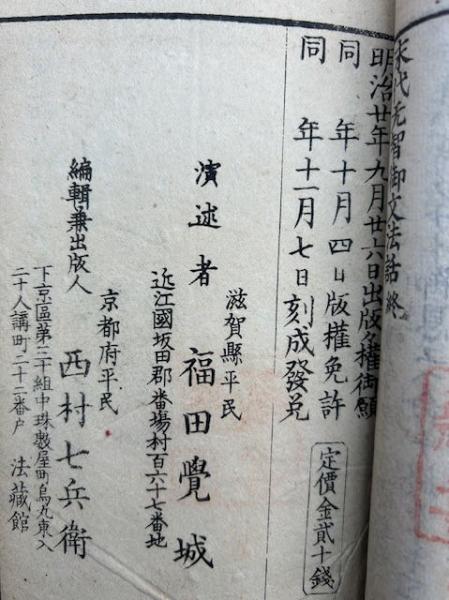 末代无智御文法話終
明治廿年九月廿六日出版々權御願
同　年十月四日版權免許
同　年十一月七日刻成發兌
定價金貳十錢
滋賀縣平民
演述者　福田覺城
近江國坂田郡番場村百六十七番地
京都府平民
編輯兼出版人　西村七兵衛
下京區第三十組中珠數屋町烏丸東入
二十人講町二十二番戶　法藏館